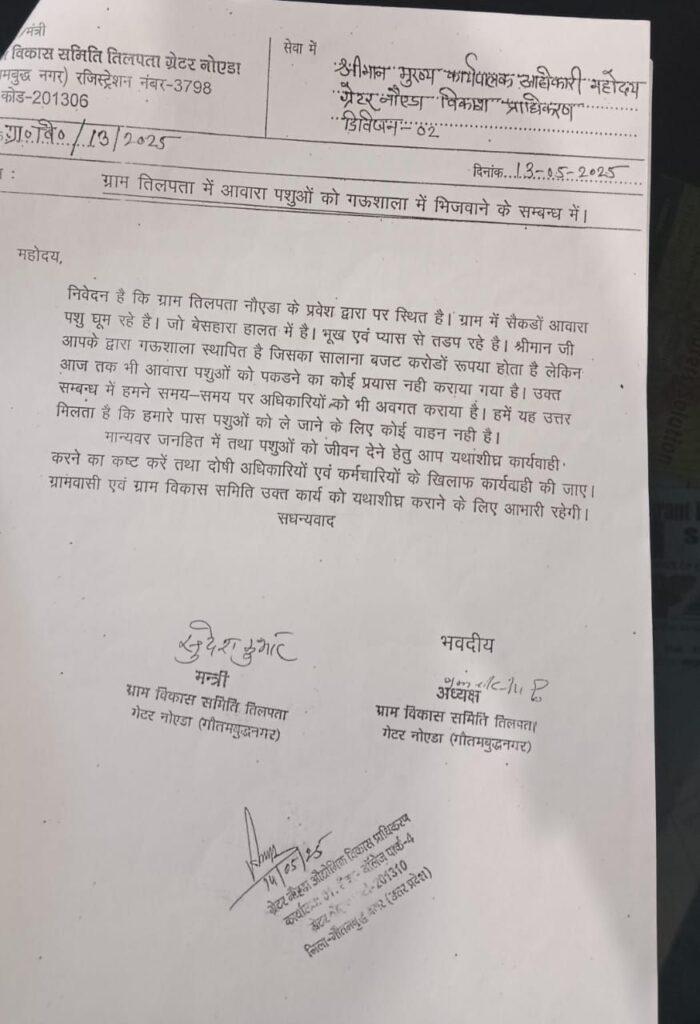 मंत्री
विकास समिति तिलपता ग्रेटर नोएडा
बुद्ध नगर) रजिस्ट्रेशन नंबर-3798
कोड-201306
ग्रा०वि०/13/2025
सेवा में
श्रीमान मुख्य कार्यपालक अधिकारी महोदय
ग्रेटर नौएडा विकास प्राधिकरण
डिविजन-02
दिनांक...13-05-2025
ग्राम तिलपता में आवारा पशुओं को गऊशाला में भिजवाने के सम्बन्ध में।
महोदय,
निवेदन है कि ग्राम तिलपता नौएडा के प्रवेश द्वारा पर स्थित है। ग्राम में सैकडों आवारा
पशु घूम रहे है। जो बेसहारा हालत में है। भूख एवं प्यास से तडप रहे है। श्रीमान जी
आपके द्वारा गऊशाला स्थापित है जिसका सालाना बजट करोडों रूपया होता है लेकिन
आज तक भी आवारा पशुओं को पकडने का कोई प्रयास नही कराया गया है। उक्त
सम्बन्ध में हमने समय-समय पर अधिकारियों को भी अवगत कराया है। हमें यह उत्तर
मिलता है कि हमारे पास पशुओं को ले जाने के लिए कोई वाहन नही है।
मान्यवर जनहित में तथा पशुओं को जीवन देने हेतु आप यथाशीघ्र कार्यवाही
करने का कष्ट करें तथा दोषी अधिकारियों एवं कर्मचारियों के खिलाफ कार्यवाही की जाए।
ग्रामवासी एवं ग्राम विकास समिति उक्त कार्य को यथाशीघ्र कराने के लिए आभारी रहेगी।
सधन्यवाद
सुदेश कुमार
मन्त्री
ग्राम विकास समिति तिलपता
गेटर नोएडा (गौतमबुद्धनगर)
भवदीय
अध्यक्ष
ग्राम विकास समिति तिलपता
गेटर नोएडा (गौतमबुद्धनगर)
14/05/25
ग्रेटर नौएडा औद्योगिक विकास प्राधिकरण
पार्क-4
ग्रेटर 201310
जिला-गौतमबुद्ध नगर (उत्तर प्रदेश)